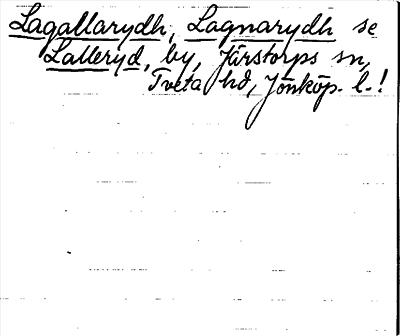 Lagallarydh, Lagnarydh se
Lalleryd, by, Järstorps sn,
Tveta hd, Jönköp. l.!